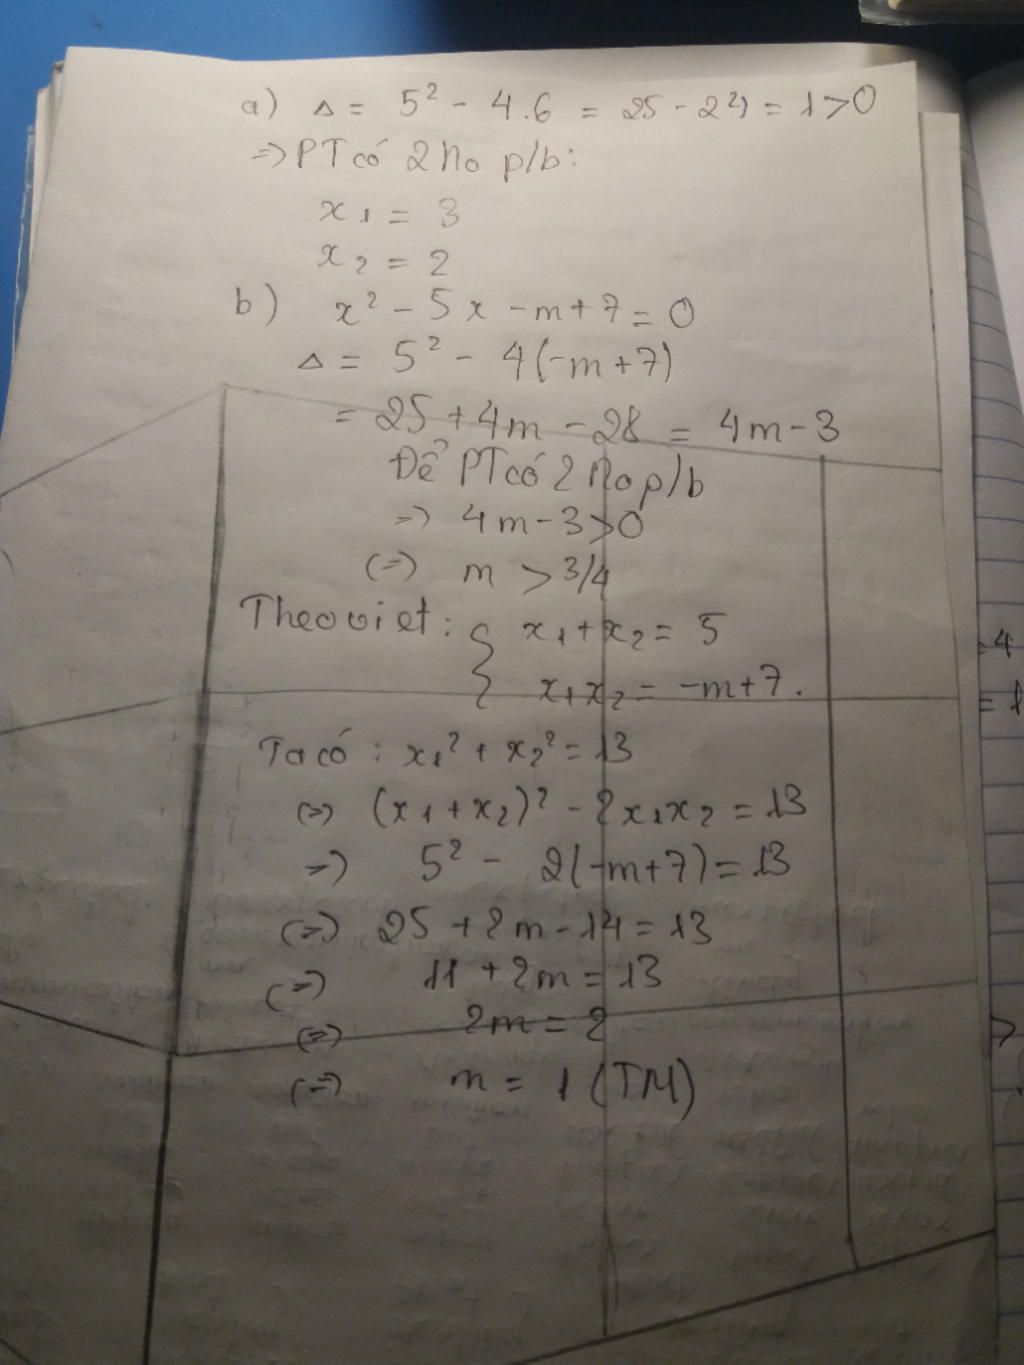 a) Δ = 5² - 4.6 = 25 - 24 = 1 > 0
=> PT có 2 No p/b:
x₁ = 3
x₂ = 2
b) x² - 5x - m + 7 = 0
Δ = 5² - 4(-m + 7)
= 25 + 4m - 28 = 4m - 3
Để PT có 2 No p/b
=> 4m - 3 > 0
(=>) m > 3/4
Theo viet: { x₁ + x₂ = 5
x₁x₂ = -m + 7.
Ta có: x₁² + x₂² = 13
(=>) (x₁ + x₂)² - 2x₁x₂ = 13
=> 5² - 2(-m + 7) = 13
(=>) 25 + 2m - 14 = 13
(=>) 11 + 2m = 13
(=>) 2m = 2
(=>) m = 1 (TM)
= 4
= 1
>